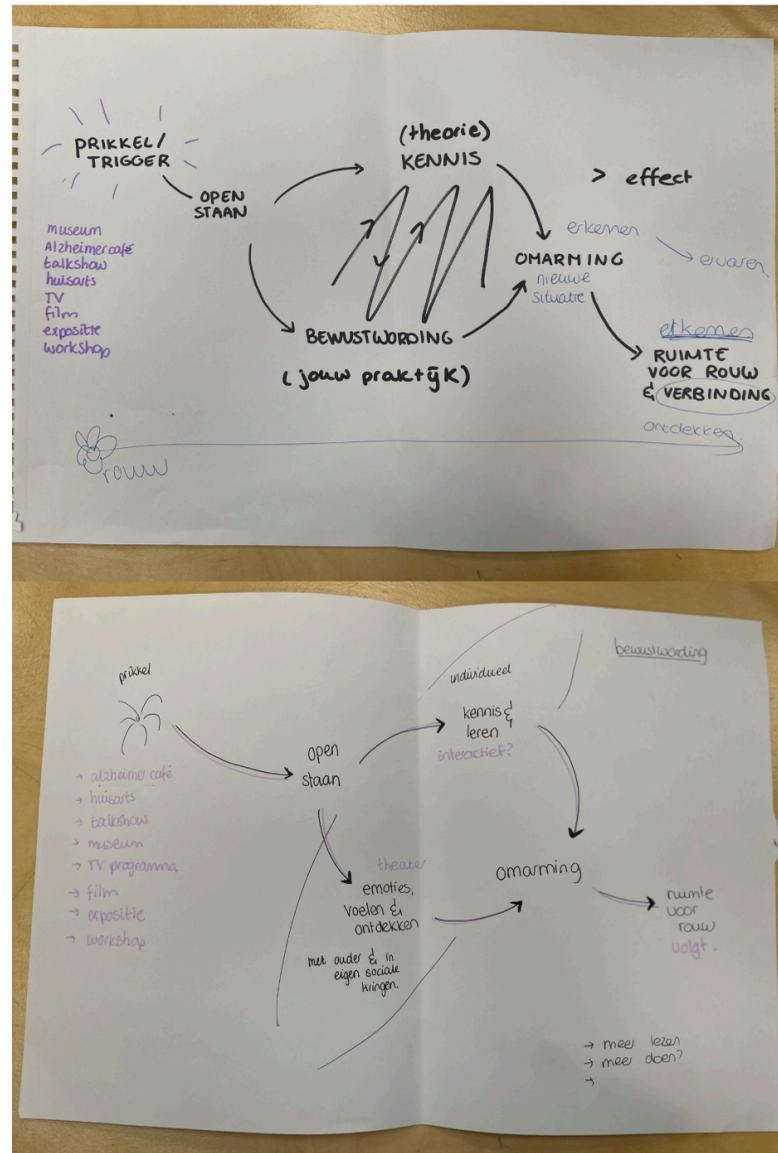 PRIKKEL/
TRIGGER
OPEN
STAAN
museum
Alzheimer café
talkshow
huisarts
TV
film
expositie
workshop
(theorie)
KENNIS
BEWUSTWORDING
(jouw praktijk)
> effect
erkennen
ervaren
OMARMING
nieuwe
situatie
erkennen
RUIMTE
VOOR ROUW
& VERBINDING
ontdekken
rouw
prikkel
→ alzheimer café
→ huisarts
→ talkshow
→ museum
→ TV programma
→ film
→ expositie
→ workshop
open
staan
individueel
kennis &
leren
interactief?
bewustwording
theater
emoties,
voelen &
ontdekken
met ouder & in
eigen sociale
kringen.
omarming
ruimte
voor
rouw
volgt.
→ meer lezen
→ meer doen?
→